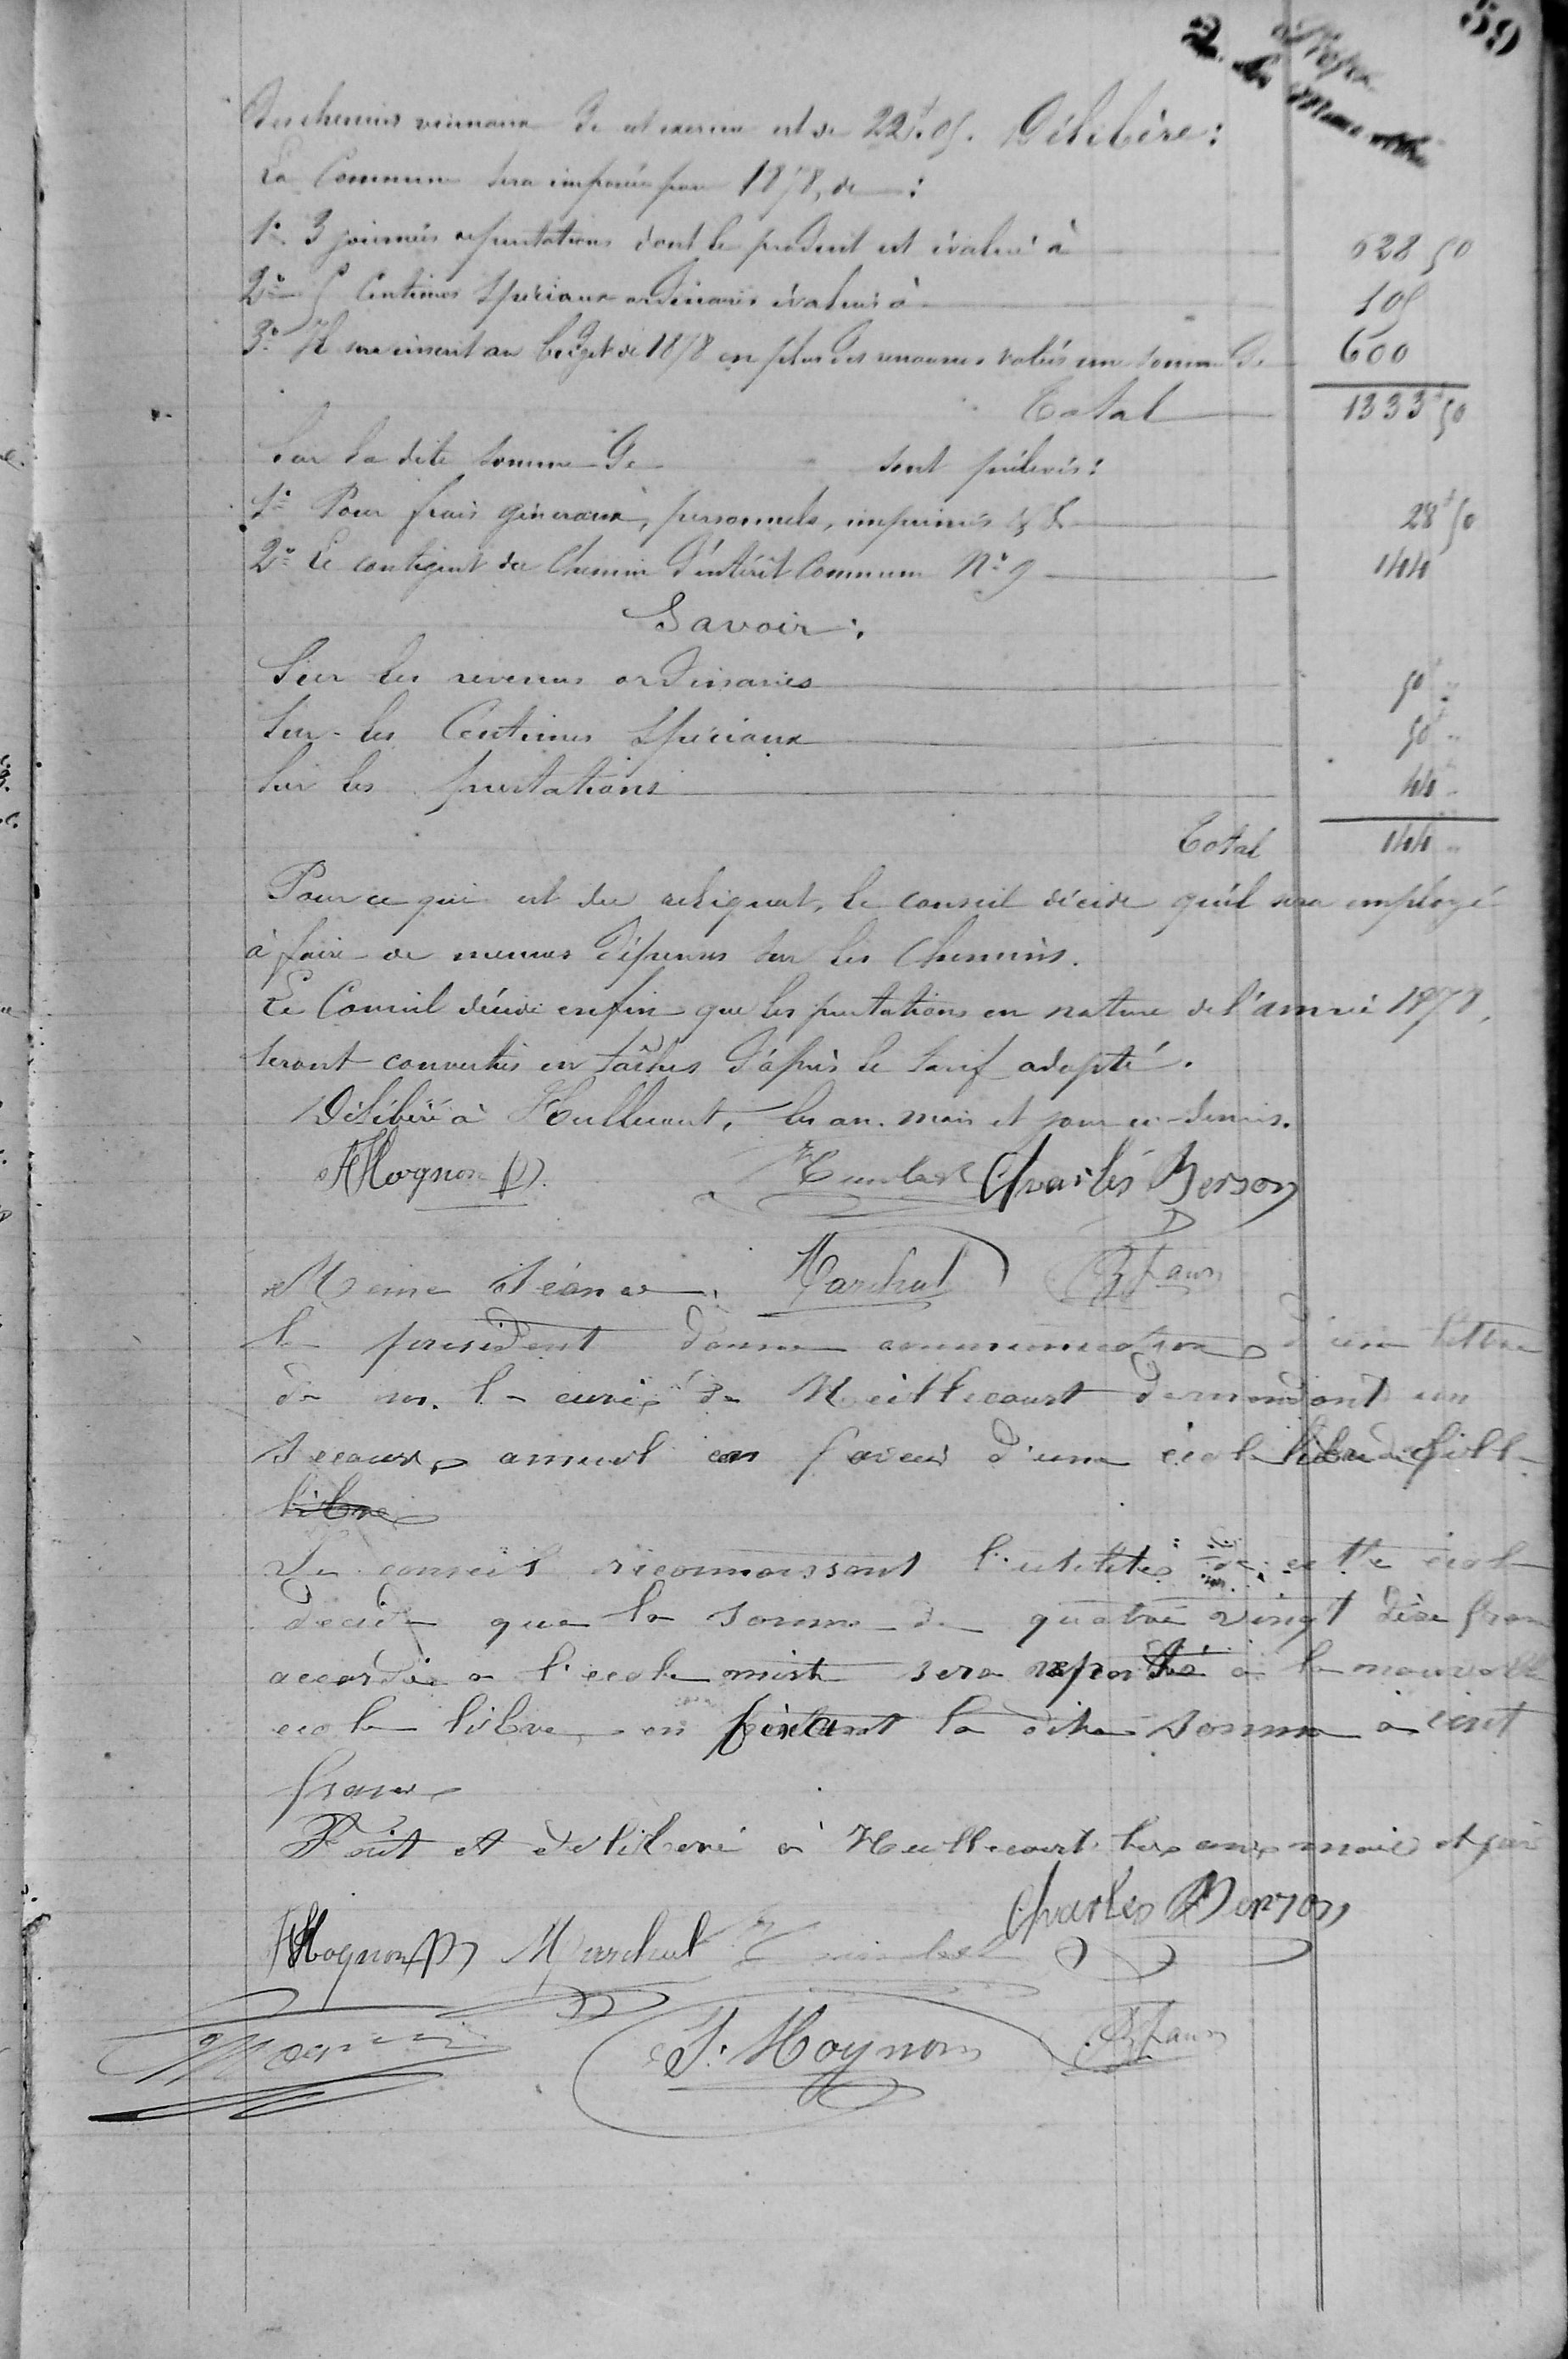 59
des chemins vicinaux de cet exercice est de 22f.05. Délibère:
La Commune sera imposée pour 1878, de :
1° 3 journées prestations dont le produit est évalué à 628 50
2° 5 Centimes spéciaux ordinaires évalués à 105
3° Il sera inscrit au budget de 1878 en plus des ressources une somme de 600
Total 1333f50
Sur la dite somme de sont prélevés:
1° Pour frais généraux, personnels, imprimés &. 28f50
2° Le contigent du Chemin d'intérêt Commun N° 9 144
Savoir:
Sur les revenus ordinaires 50f "
Sur les Centimes spéciaux 50f "
Sur les prestations 44 "
Total 144 "
Pour ce qui est du reliquat, le conseil décide qu'il sera employé
à faire de menues dépenses sur les Chemins.
Le Conseil décide enfin que les prestations en nature de l'année 1878,
seront converties en tâches d'après le tarif adopté.
Délibéré à Heillecourt, les an, mois et jour ci-dessus.
Mognon Humbert Charles Berson
Meme séance. Marchal
le president donne communication d'une lettre
de m. le curé de Heillecourt demandont un
secours annuel en faveur d'une école libre de fille
libre
Le conseil reconnaissant l'utilité de cette école
decide que la somme de quatre vingt dix franc
accordée a l'ecole mixte sera reporté à la nouvelle
ecole libre en portant la dite somme à cent
francs
Fait et deliberé à Heillecourt les ans mois et jour
Charles Berson
Mognon Marchal Humbert
J. Mognon